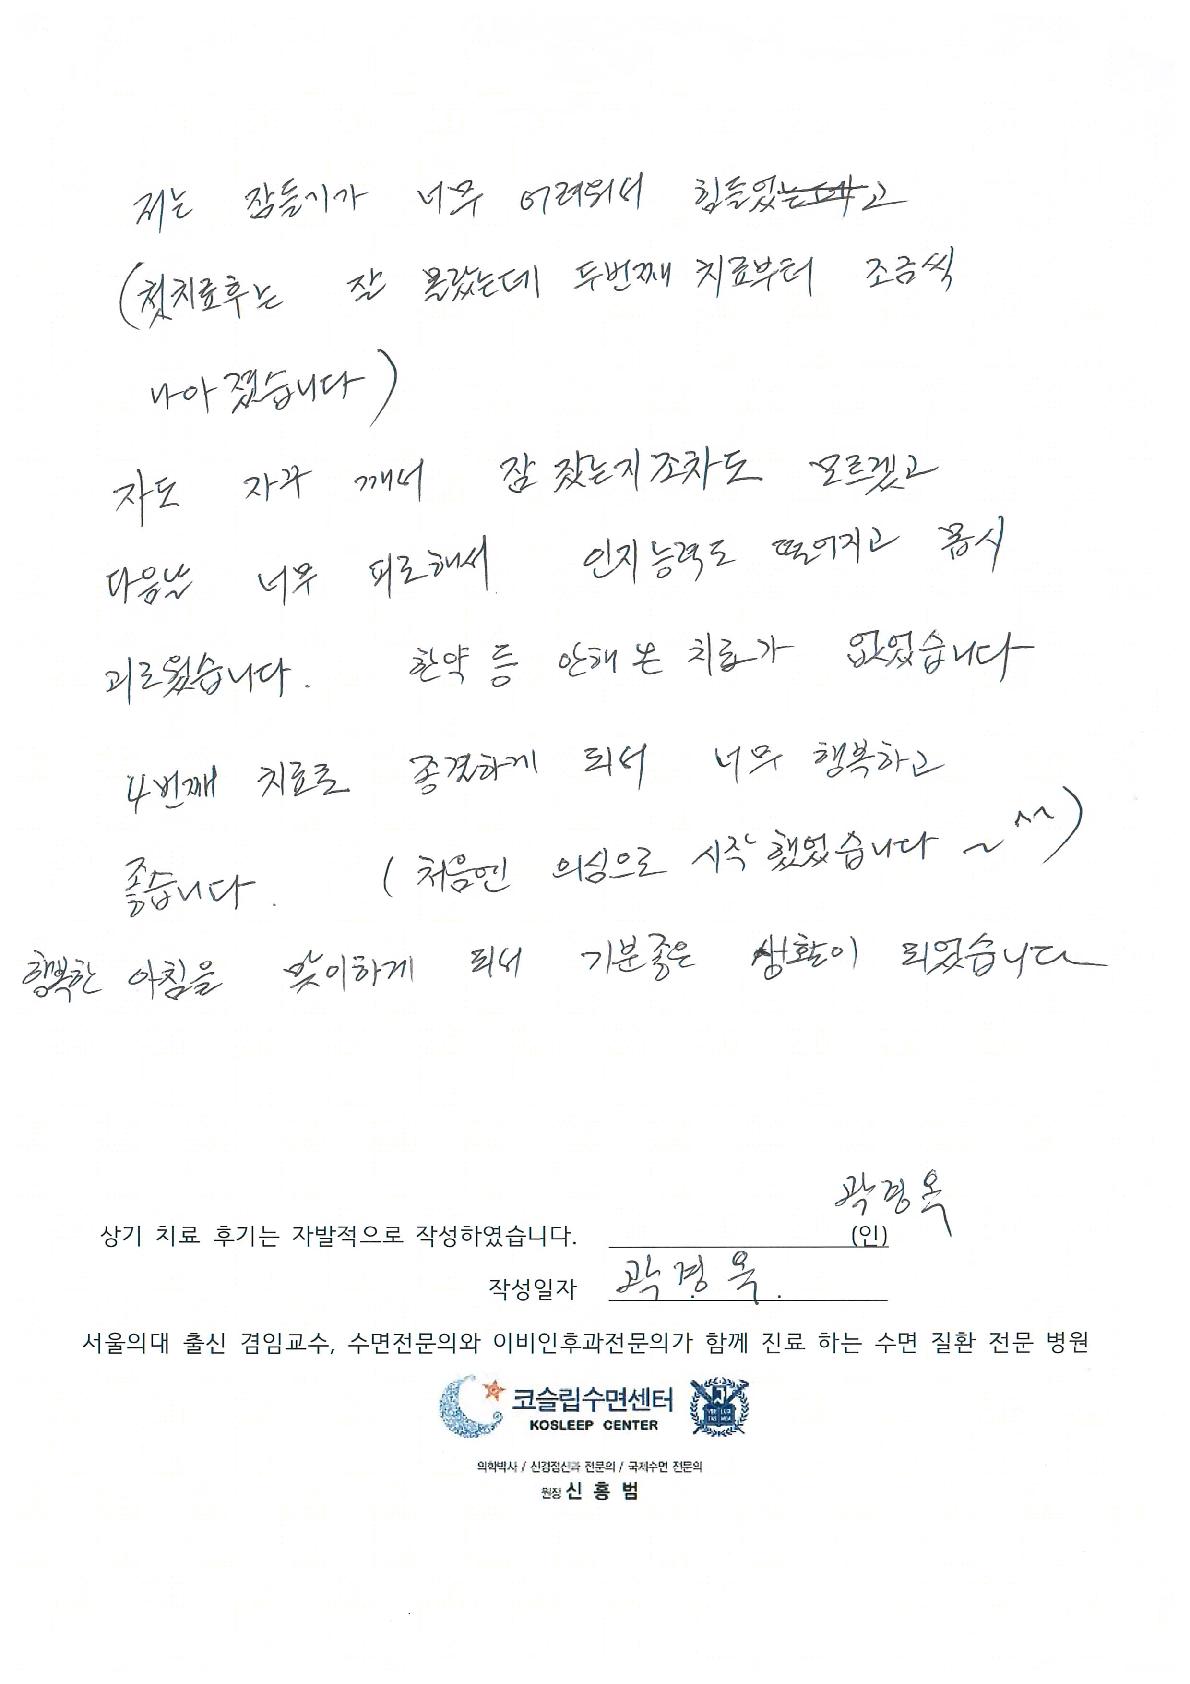 저는 잠들기가 너무 어려워서 힘들었고
(첫치료후는 잘 몰랐는데 두번째 치료부터 조금씩
나아졌습니다)
자도 자꾸 깨서 잠 잤는지조차도 모르겠고
다음날 너무 피로해서 인지능력도 떨어지고 몹시
괴로웠습니다. 한약 등 안해 본 치료가 없었습니다
4번째 치료로 종결하게 되서 너무 행복하고
좋습니다. (처음엔 의심으로 시작했었습니다 ~^^)
행복한 아침을 맞이하게 되서 기분좋은 생활이 되었습니다
곽경옥
상기 치료 후기는 자발적으로 작성하였습니다. (인)
작성일자 곽경옥.
서울의대 출신 겸임교수, 수면전문의와 이비인후과전문의가 함께 진료 하는 수면 질환 전문 병원
코슬립수면센터
KOSLEEP CENTER
의학박사 / 신경정신과 전문의 / 국제수면 전문의
원장 신 홍 범